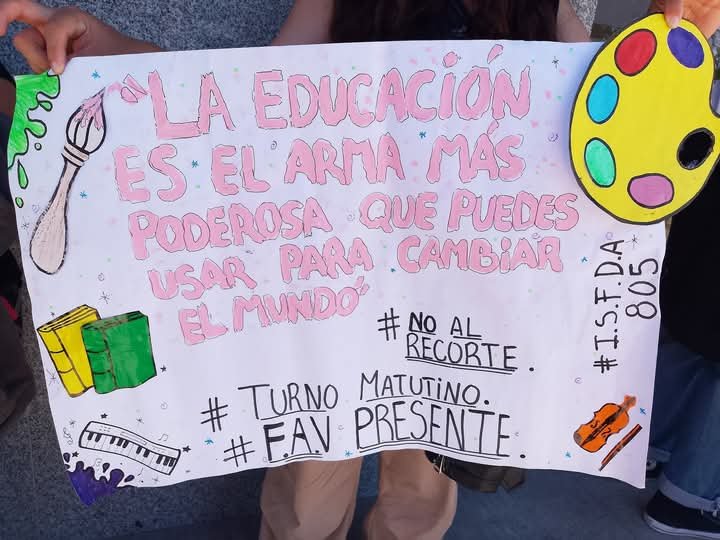 "LA EDUCACIÓN
ES EL ARMA MÁS
PODEROSA QUE PUEDES
USAR PARA CAMBIAR
EL MUNDO"
# NO AL
RECORTE.
# TURNO MATUTINO.
# F.A.V PRESENTE.
#I.S.F.D.A
805